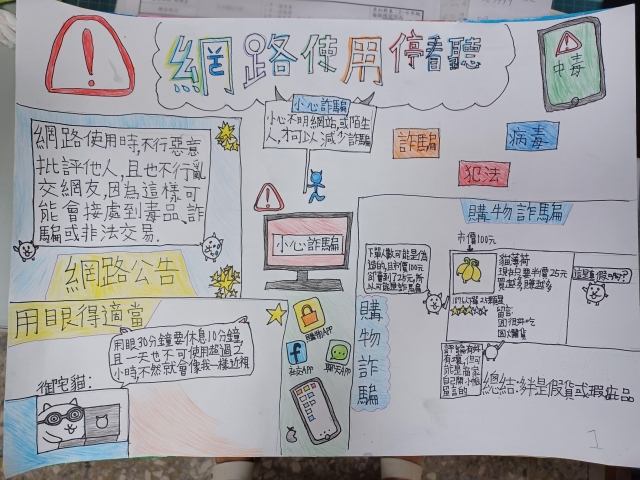 網路使用停看聽
中毒
小心詐騙
小心不明網站,或陌生
人,才可以減少詐騙
詐騙
病毒
犯法
網路使用時,不行惡意
批評他人,且也不行亂
交網友,因為這樣可
能會接處到毒品、詐
騙或非法交易.
網路公告
小心詐騙
購物詐騙
市價100元
貓薄荷
現在只要半價25元
買越多賺越多
留言:
因很好吃
這是真假的?
下單人數可能是偽
造的,且市價100元
以可能是詐騙
購物詐騙
用眼得適當
用眼30分鐘要休息10分鐘,
且一天也不可使用超過2
小時不然就會像我一樣近視
御宅貓:
購物APP
社交APP
聊天APP
總結:絆是假貨或瑕疵品
1